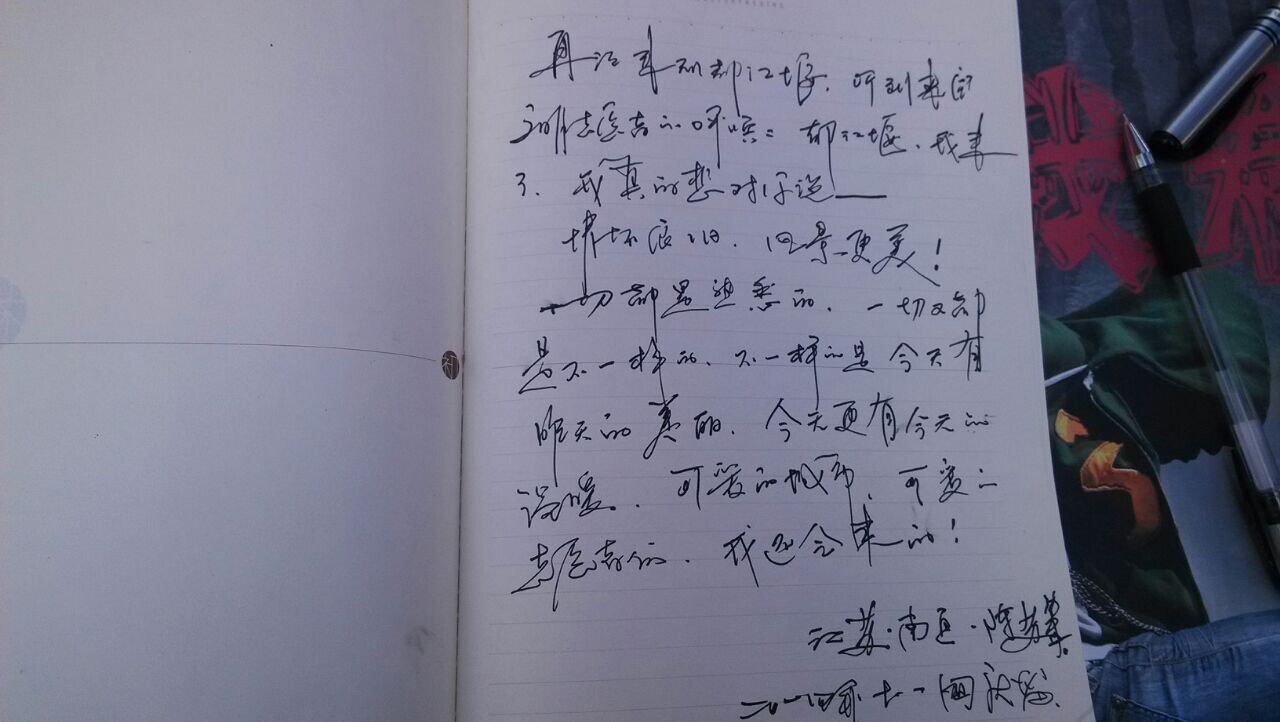 再次来到都江堰，听到来自
志愿者的呼唤：都江堰，我来
了，我真的想对你说——
依旧，风景更美！
一切都是熟悉的，一切又都
是不一样的，不一样的是今天有
昨天的美丽，今天更有今天的
温暖。可爱的城市，可爱的
志愿者们，我还会来的！
江苏·南通·陈
二〇一四年十一国庆